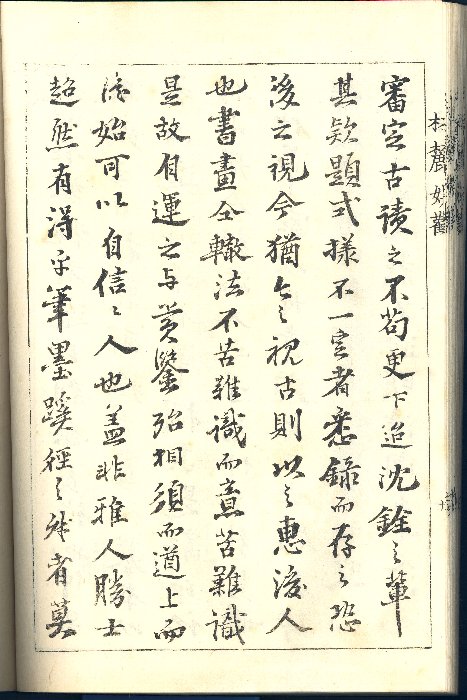 審定古蹟之不苟更下迨沈銓之輩
其欵題式樣不一定者悉錄而存之恐
後之視今猶今之視古則以之惠後人
也書畫仝轍法不苦難識而意苦難識
是故自運之与賞鑒殆相須而遒上而
後始可以自信信人也蓋非雅人勝士
超然有得乎筆墨蹊徑之外者莫